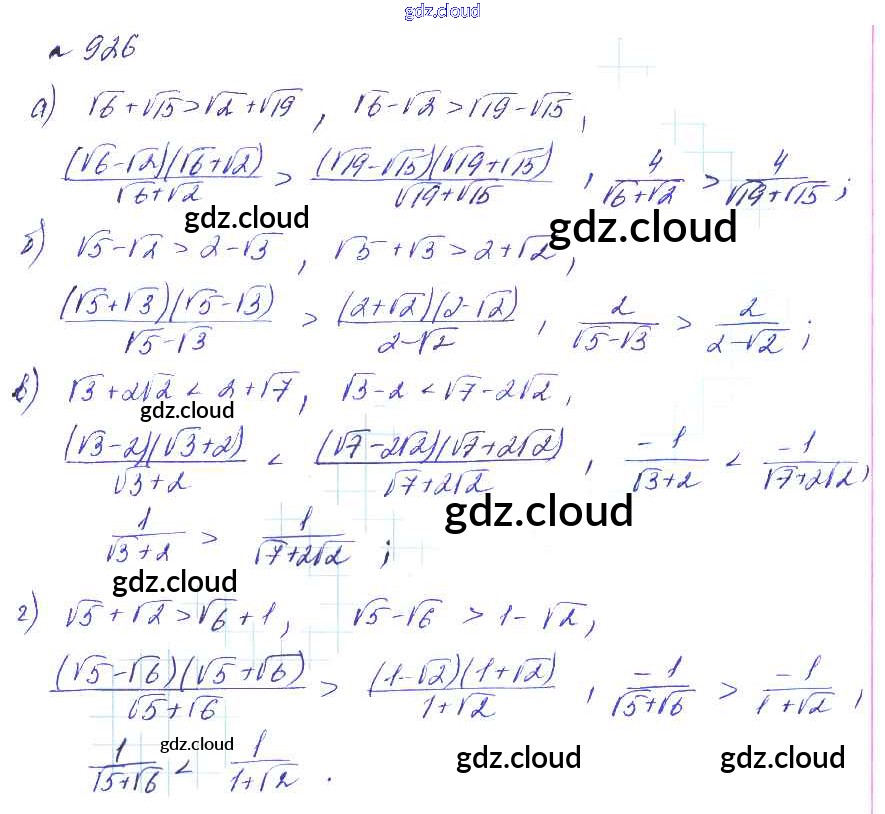 gdz.cloud
№ 926
а) √6 + √15 > √2 + √19 , √6 - √2 > √19 - √15 ,
(√6-√2)(√6+√2)/(√6+√2) > (√19-√15)(√19+√15)/(√19+√15) , 4/(√6+√2) > 4/(√19+√15) ;
gdz.cloud gdz.cloud
б) √5 - √2 > 2 - √3 , √5 + √3 > 2 + √2 ,
(√5+√3)(√5-√3)/(√5-√3) > (2+√2)(2-√2)/(2-√2) , 2/(√5-√3) > 2/(2-√2) ;
в) √3 + 2√2 < 2 + √7 , √3 - 2 < √7 - 2√2 ,
gdz.cloud
(√3-2)(√3+2)/(√3+2) < (√7-2√2)(√7+2√2)/(√7+2√2) , -1/(√3+2) < -1/(√7+2√2) ,
gdz.cloud
1/(√3+2) > 1/(√7+2√2) ;
gdz.cloud
г) √5 + √2 > √6 + 1 , √5 - √6 > 1 - √2 ,
(√5-√6)(√5+√6)/(√5+√6) > (1-√2)(1+√2)/(1+√2) , -1/(√5+√6) > -1/(1+√2) ,
gdz.cloud gdz.cloud gdz.cloud
1/(√5+√6) < 1/(1+√2) .